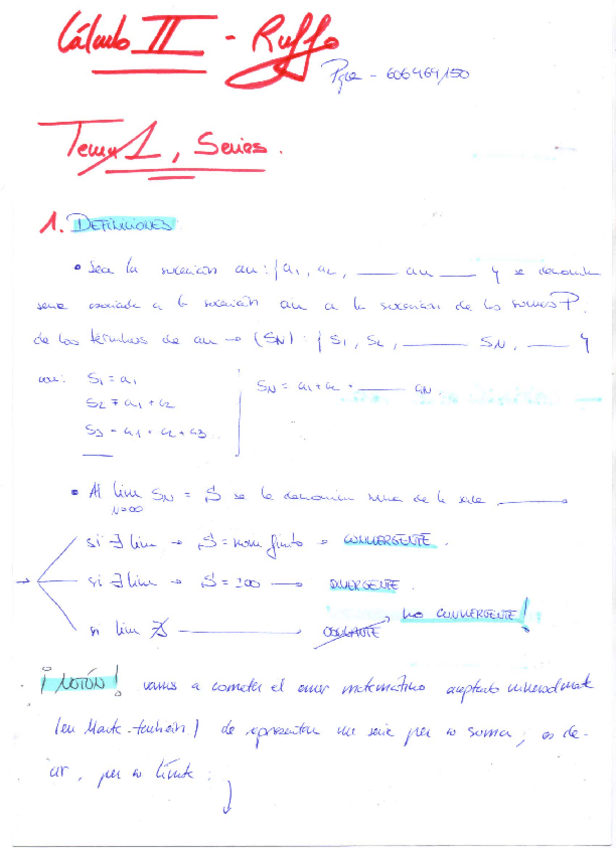 Cálculo III - Ruffo
Pepe - 606464150
Tema 1, Series.
1. DEFINICIONES
• Sea la sucesión an: {a1, a2, ___ an ___ } y se denomina
serie asociada a la sucesión an a la sucesión de las sumas P.
de los términos de an → (SN): {S1, S2, ___ SN, ___ }
con: S1 = a1
S2 = a1 + a2
S3 = a1 + a2 + a3
SN = a1 + a2 + ___ aN.
• Al lim SN = S se le denomina suma de la serie
N→∞
si ∃ lim → S = num finito → CONVERGENTE.
si ∃ lim → S = ±∞ → DIVERGENTE.
si lim ∄ → OSCILANTE → NO CONVERGENTE!
¡NOTÓN! vamos a cometer el error matemático aceptado universalmente
(en Marte también) de representar una serie por su suma; es de-
cir, por su límite: